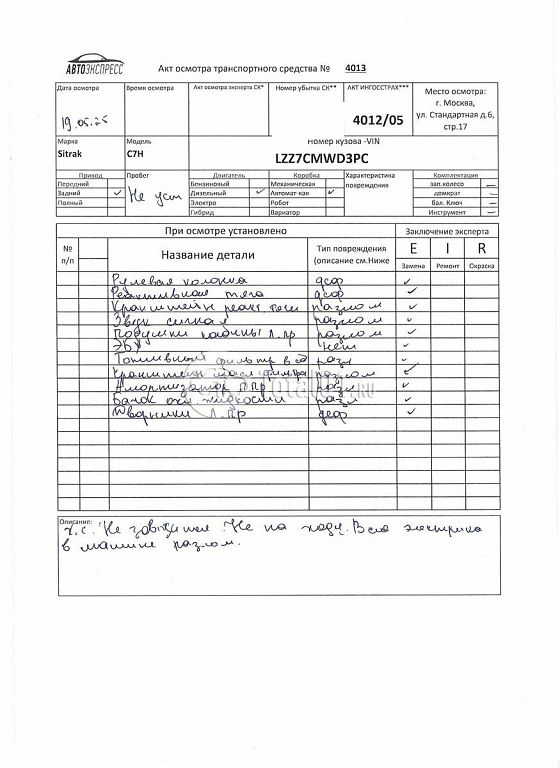 АВТОЭКСПРЕСС
Акт осмотра транспортного средства № 4013
Дата осмотра
Время осмотра
Акт осмотра эксперта СК*
Номер убытка СК**
АКТ ИНГОССТРАХ***
Место осмотра:
г. Москва,
ул. Стандартная д.6,
стр.17
19.05.25
4012/05
Марка
Модель
номер кузова -VIN
Sitrak
C7H
LZZ7CMWD3PC
Привод
Пробег
Двигатель
Коробка
Характеристика повреждения
Комплектация
Передний
Бензиновый
Механическая
зап.колесо —
Задний ✓
Не уст
Дизельный ✓
Автомат-кая ✓
домкрат —
Полный
Электро
Робот
бал. Ключ —
Гибрид
Вариатор
Инструмент —
При осмотре установлено
Заключение эксперта
№ п/п
Название детали
Тип повреждения (описание см.Ниже
E I R
Замена Ремонт Окраска
Рулевая колонка деф ✓
Реактивная тяга деф ✓
Кронштейн реакт тяги разлом ✓
Звук сигнал разлом ✓
Подушки кабины л.пр разлом ✓
ЭБУ нет ✓
Топливный фильтр в сб разл ✓
Кронштейн масл фильтра разлом ✓
Амортизатор п.пр разл ✓
Бачок ож. жидкости разл ✓
Дворники л.пр деф ✓
Описание:
Т.С. Не заводится. Не на ходу. Вся электрика
в машине разлом.